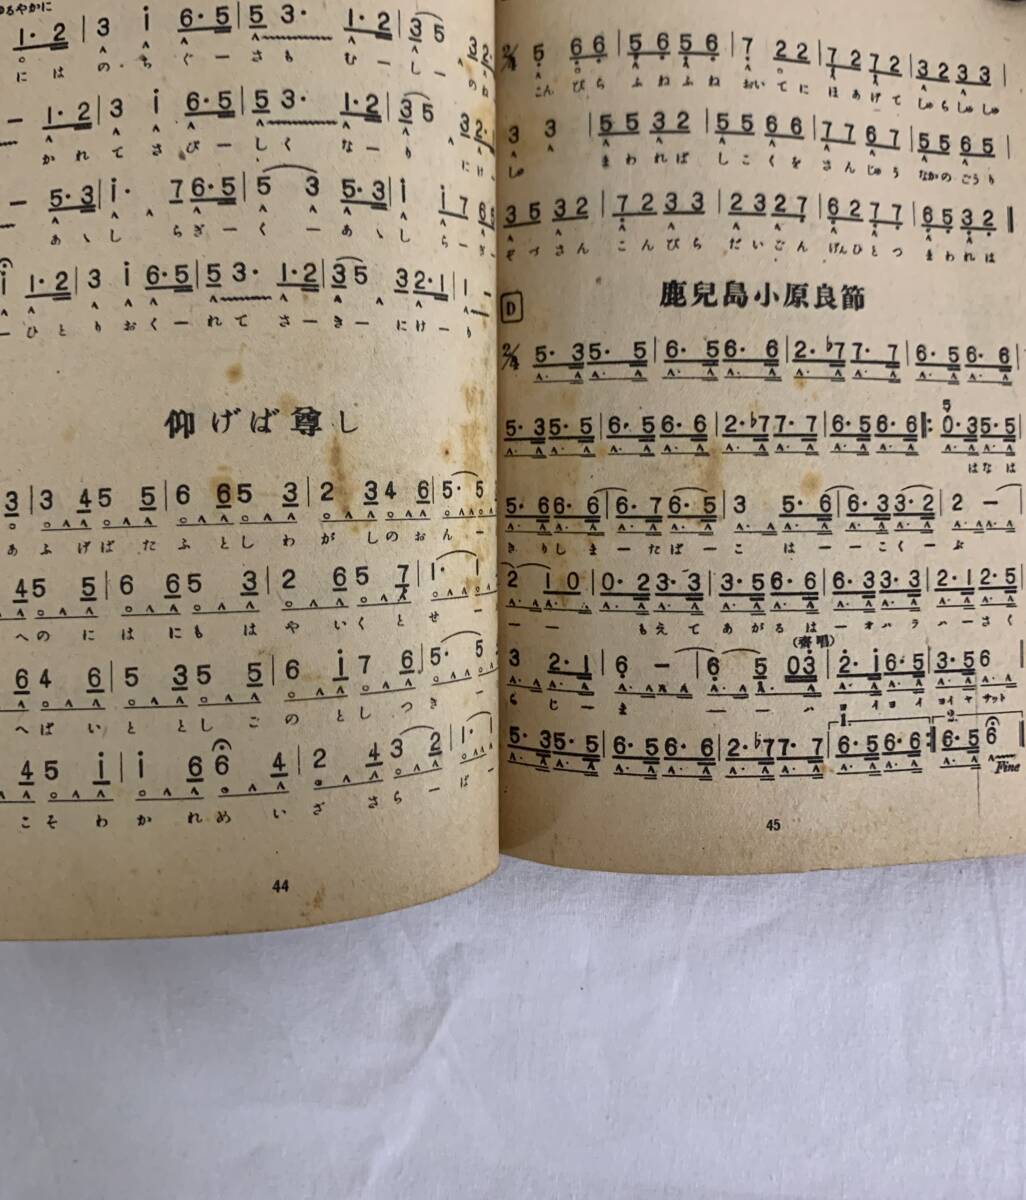 ゆるやかに
1・2 | 3 i 6・5 | 5 3・ 1・2 | 3 5 3 2・
には のち ぐーさも むーし のね
1・2 | 3 i 6・5 | 5 3・ 1・2 | 3 5
かれてさびーしくなーり にけ
5・3 | i・ 7 6・5 | 5 3 5・3 | i i 7 6 5
あゝし らぎーく ーあゝし らーぎ
i 1・2 | 3 i 6・5 | 5 3・ 1・2 | 3 5 3 2・1 | 1 －
ーひとりおくーれてさーきーにけーり
仰げば尊し
3 | 3 4 5 5 | 6 6 5 3 | 2 3 4 6 | 5・5
あふげばたふとしわがしのおんー
4 5 5 | 6 6 5 3 | 2 6 5 7 | 1・1
へのにはにもはやいくとせー
6 4 6 | 5 3 5 5 | 6 i 7 6 | 5・5
へばいととしごのとしつきー
4 5 i | i 6 6 4 | 2 4 3 2 | 1・
こそわかれめいざさらーばー
44
2/4 5 6 6 | 5 6 5 6 | 7 2 2 | 7 2 7 2 | 3 2 3 3 |
こんぴら ふねふね おいてに ほあげて しゅらしゅしゅ
3 3 | 5 5 3 2 | 5 5 6 6 | 7 7 6 7 | 5 5 6 5 |
しゅ まわれば しこくを さんじゅう なかのごうり
3 5 3 2 | 7 2 3 3 | 2 3 2 7 | 6 2 7 7 | 6 5 3 2 ‖
ぞづさん こんぴら だいごん げんひとつ まわれは
D
鹿兒島小原良節
2/4 5・3 5・5 | 6・5 6・6 | 2・♭7 7・7 | 6・5 6・6 |
5・3 5・5 | 6・5 6・6 | 2・♭7 7・7 | 6・5 6・6 |: 5 0・3 5・5 |
はなは
5・6 6・6 | 6・7 6・5 | 3 5・6 | 6・3 3・2 | 2 －
きりしまーたばーこはーーこくーぶ
2 1 0 | 0・2 3・3 | 3・5 6・6 | 6・3 3・3 | 2・1 2・5 |
ーー もえてあがるはーオハラハーさく
(齊唱)
3 2・1 | 6 － | 6 5 0 3 | 2・i 6・5 | 3・5 6 |
らじま ーーハ ヨイヨイ ヨイヤサット
1. 2.
5・3 5・5 | 6・5 6・6 | 2・♭7 7・7 | 6・5 6・6 :| 6・5 6 ‖
Fine
45